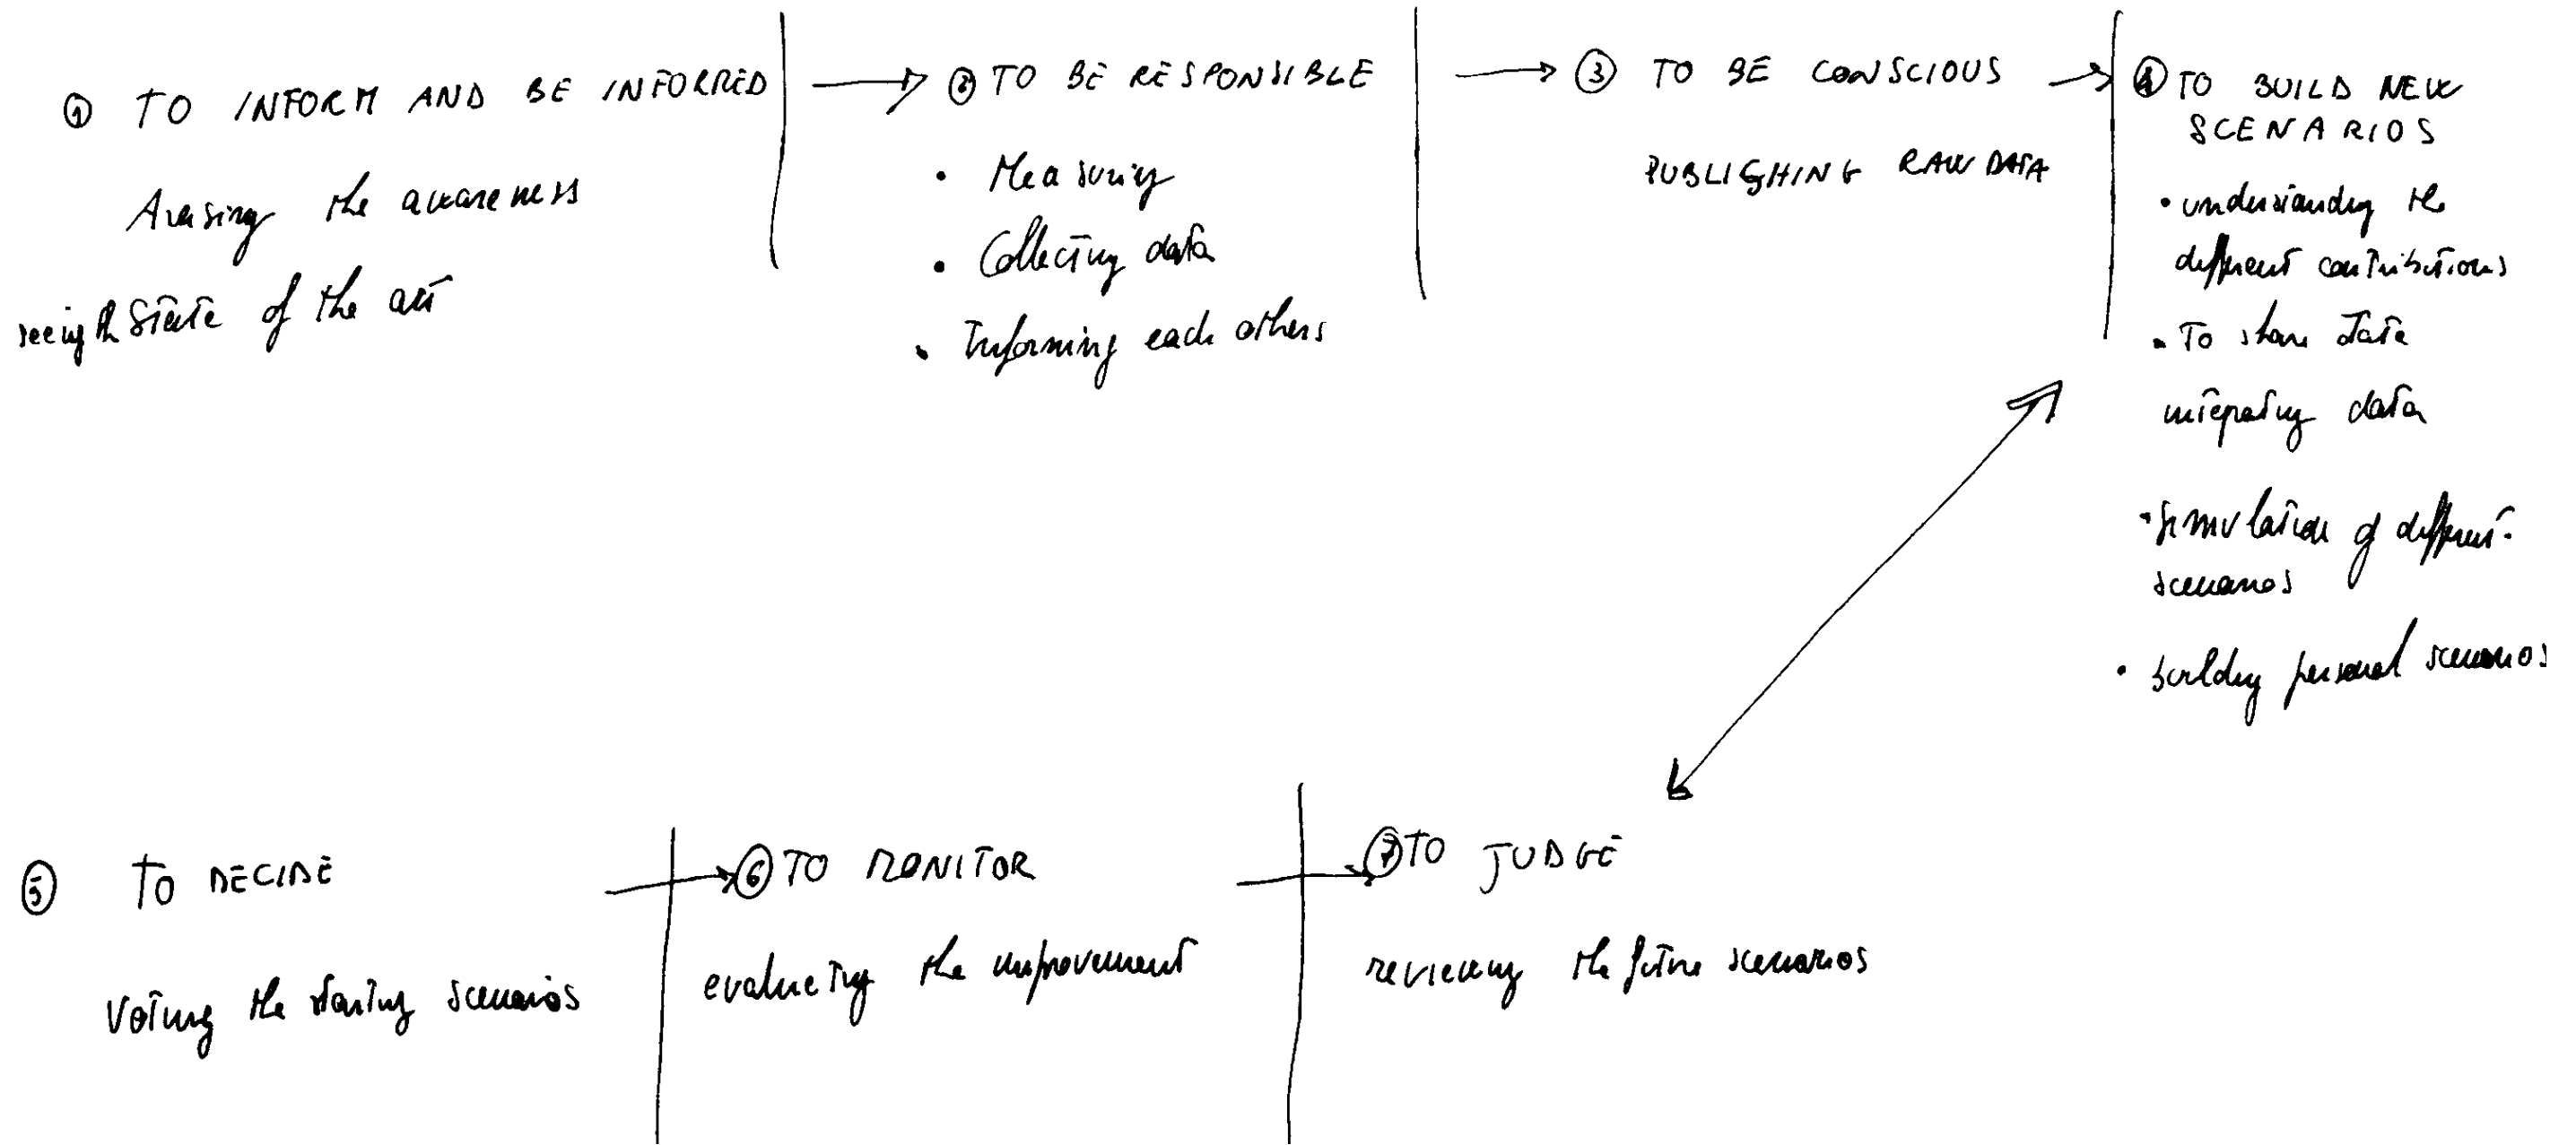 ① TO INFORM AND BE INFORMED
Arasing the awareness
seeing the State of the art
② TO BE RESPONSIBLE
• Measuring
• Collecting data
• Informing each others
③ TO BE CONSCIOUS
PUBLISHING RAW DATA
④ TO BUILD NEW
SCENARIOS
• understanding the
different contributions
• To share data
integrating data
• simulation of different
scenarios
• building personal scenarios
⑤ TO DECIDE
Voting the starting scenarios
⑥ TO MONITOR
evaluating the improvement
⑦ TO JUDGE
reviewing the future scenarios